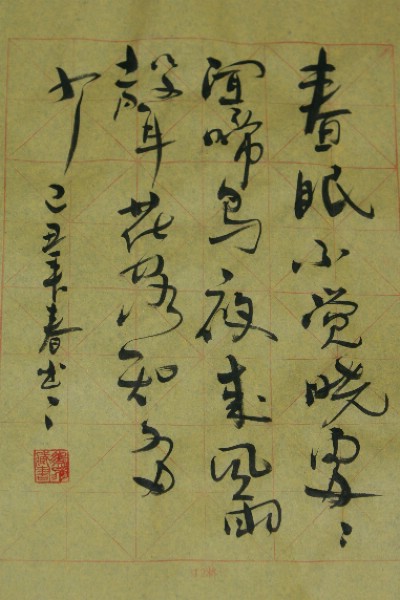 春眠不觉晓處〻
闻啼鸟夜来风雨
聲花落知多
少 己丑年春书